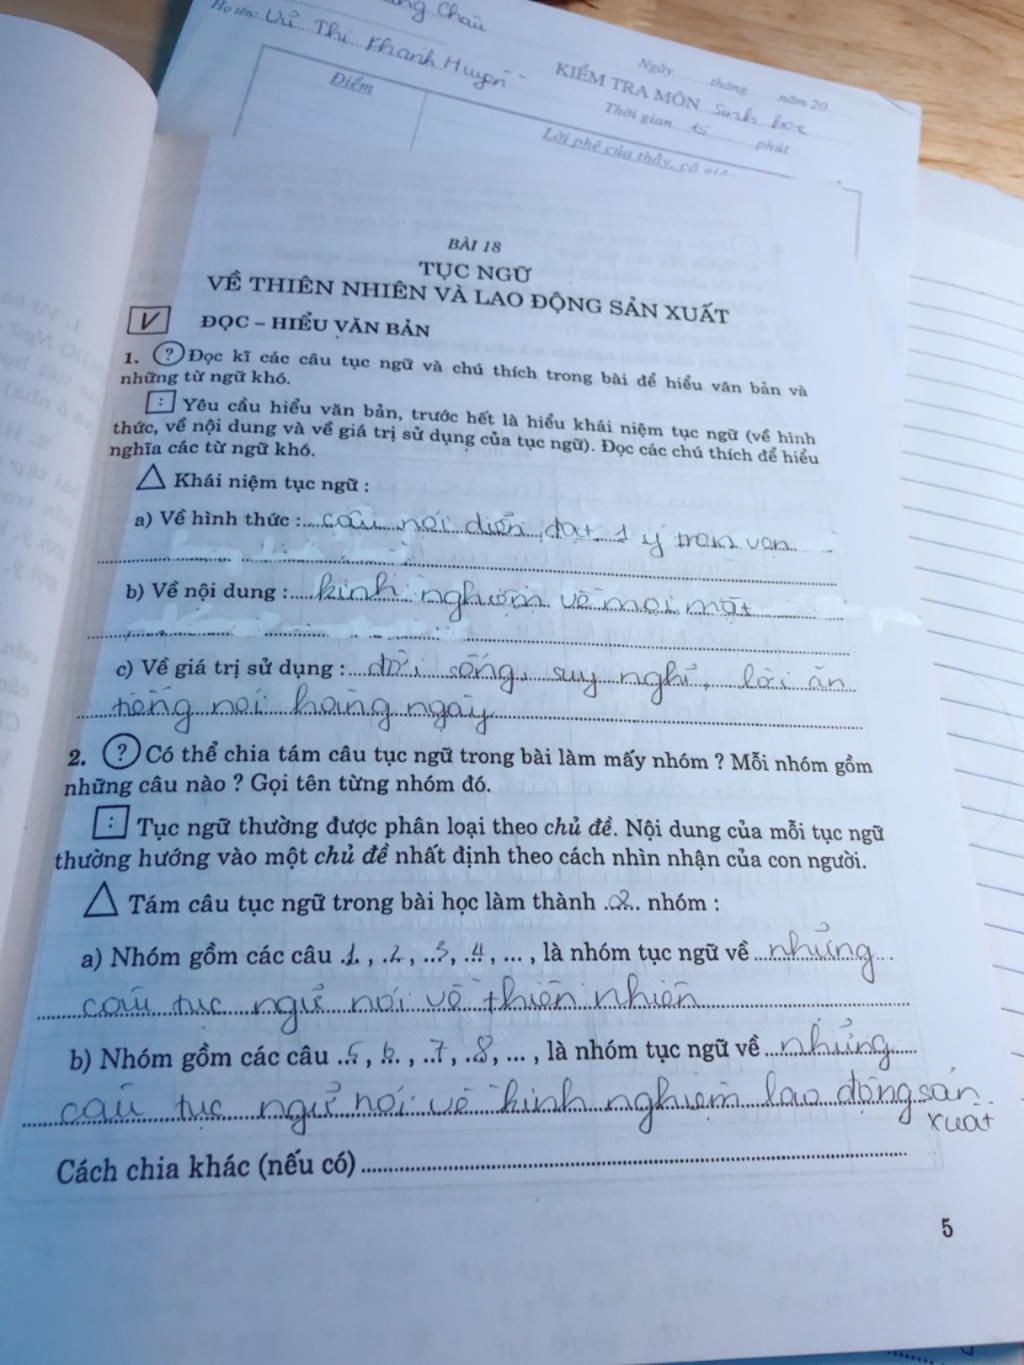 ng Châu
Họ tên: Vũ Thị Khánh Huyền
Ngày tháng năm 20
KIỂM TRA MÔN Sinh học
Thời gian 15 phút
Điểm
Lời phê của thầy, cô
BÀI 18
TỤC NGỮ
VỀ THIÊN NHIÊN VÀ LAO ĐỘNG SẢN XUẤT
V ĐỌC – HIỂU VĂN BẢN
1. ? Đọc kĩ các câu tục ngữ và chú thích trong bài để hiểu văn bản và
những từ ngữ khó.
: Yêu cầu hiểu văn bản, trước hết là hiểu khái niệm tục ngữ (về hình
thức, về nội dung và về giá trị sử dụng của tục ngữ). Đọc các chú thích để hiểu
nghĩa các từ ngữ khó.
Khái niệm tục ngữ :
a) Về hình thức : câu nói diễn đạt 1 ý trọn vẹn
b) Về nội dung : kinh nghiệm về mọi mặt
c) Về giá trị sử dụng : đời sống, suy nghĩ, lời ăn
tiếng nói hàng ngày
2. ? Có thể chia tám câu tục ngữ trong bài làm mấy nhóm ? Mỗi nhóm gồm
những câu nào ? Gọi tên từng nhóm đó.
: Tục ngữ thường được phân loại theo chủ đề. Nội dung của mỗi tục ngữ
thường hướng vào một chủ đề nhất định theo cách nhìn nhận của con người.
Tám câu tục ngữ trong bài học làm thành 2 nhóm :
a) Nhóm gồm các câu 1, 2, 3, 4, ... , là nhóm tục ngữ về những
câu tục ngữ nói về thiên nhiên
b) Nhóm gồm các câu 5, 6, 7, 8, ... , là nhóm tục ngữ về những
câu tục ngữ nói về kinh nghiệm lao động sản
xuất
Cách chia khác (nếu có)
5